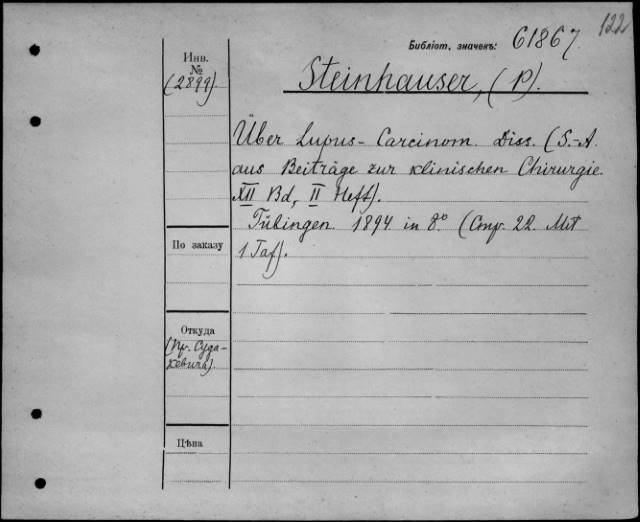 122
Библіот. значекъ: 61867.
Инв.
№
(2899).
Steinhauser, (P).
Über Lupus-Carcinom. Diss. (S.-A.
aus Beiträge zur klinischen Chirurgie.
XII Bd, II Heft).
Tübingen 1894 in 8° (Стр. 22. Mit
1 Taf).
По заказу
Откуда
(Пр. Суда-
кевичъ).
Цѣна